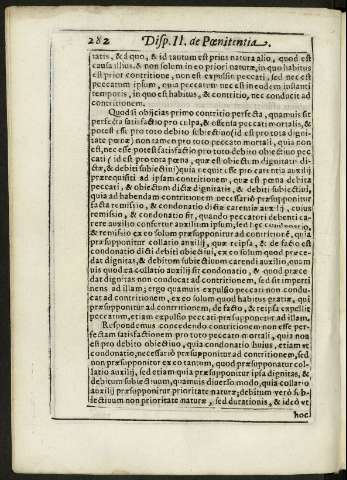 282 Disp. II. de Pœnitentia.
tatis, & à quo, & id tantum est prius natura alio, quod est
causa illius & non solem in eo priori naturæ, in quo habitus
est prior contritione, non est expulsio peccati, sed nec est
peccatum ipsum, quia peccatum nec est in eodem instanti
temporis, in quo est habitus, & contritio, nec conducit ad
contritionem.
Quod si obijcias primo contritio perfecta, quamuis sit
perfecta satisfactio pro culpa, & offensa peccati mortalis, &
potest esse pro toto debito subiectiuo (id est pro tota digni-
tate pœnæ) non tamen pro toto peccato mortali, quia non
est, nec esse potest satisfactio pro toto debito obiectiuo pec
cati (id est pro tota pœna, quæ est obiectum dignitatis di-
ctæ, & debiti subiectiui) quia requirit de pro carentia auxilij
prærequisiti ad ipsam contritionem, quæ est pœna debita
peccati, & obiectum dictæ dignitatis, & debiti subiectiui,
quia ad habendam contritionem necessariò præsupponitur
facta remissio, & condonatio dictæ carentiæ auxilij, cuius
remissio, & condonatio fit, quando peccatori debenti ca-
rere auxilio confertur auxilium ipsum, sed hęc condonatio,
& remissio ex eo solum præsupponitur ad contritionē, quia
præsupponitur collatio auxilij, quæ reipsa, & de facto est
condonatio dicti debiti obiectiui, ex eo solum quod præce-
dat dignitas, & debitum subiectiuum carendi auxilio, quam
uis quod ea collatio auxilij sit condonatio, & quod præce-
dat dignitas non conducat ad contritionem, sed sit imperti
nens ad illam; ergo quamuis expulso peccati non condu-
cat ad contritionem, ex eo solum quod habitus gratiæ, qui
præsupponitur ad contritionem, de facto, & reipsa expellit
peccatum, etiam expulso peccati præsupponetur ad illam.
Respondemus concedendo contritionem non esse per-
fectam satisfactionem pro toto peccato mortali, quia non
est pro debito obiectiuo, quia condonatio huius, etiam vt
condonatio, necessariò præsupponitur ad contritionem, sed
non præsupponitur ex eo tantum, quod præsupponatur col-
latio auxilij, sed etiam quia præsupponitur ipsa dignitas, &
debitum subiectiuum, quamuis diuerso modo, quia collatio
auxilij præsupponitur prioritate naturæ; debitum verò sub-
iectiuum non prioritate naturæ, sed durationis, & ideò vt
hoc